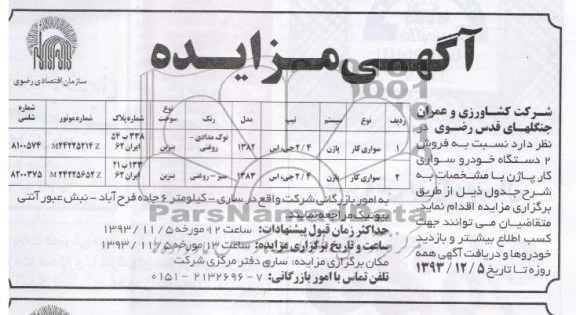 آگهی مزایده
سازمان اقتصادی رضوی
شرکت کشاورزی و عمران
جنگلهای قدس رضوی در
نظر دارد نسبت به فروش
۲ دستگاه خودرو سواری
کار پاژن با مشخصات به
شرح جدول ذیل از طریق
برگزاری مزایده اقدام نماید.
متقاضیان می توانند جهت
کسب اطلاع بیشتر و بازدید
خودروها و دریافت آگهی همه
روزه تا تاریخ ۱۳۹۳/۱۲/۵
ردیف نوع سیستم تیپ مدل رنگ نوع سوخت شماره پلاک شماره موتور شماره شاسی
۱ سواری کار پاژن ۴/۲ جی‌ال‌اس ۱۳۸۲ نوک مدادی - روغنی بنزین ۳۳۸ ب ۵۴ ایران ۶۲ M۲۴۴۲۵۲۱۴Z ۸۱۰۰۵۷۴
۲ سواری کار پاژن ۴/۲ جی‌ال‌اس ۱۳۸۳ سبز - روغنی بنزین ایران ۶۲ M۲۴۲۲۵۶۵۲Z ۸۲۰۰۳۷۵
به امور بازرگانی شرکت واقع در ساری - کیلومتر ۶ جاده فرح آباد - نبش عبور آنتی
بیوتیک مراجعه نمایند.
حداکثر زمان قبول پیشنهادات: ساعت ۱۲ مورخه ۱۳۹۳/۱۱/۵
ساعت و تاریخ برگزاری مزایده: ساعت ۱۳ مورخه ۱۳۹۳/۱۱/۵
مکان برگزاری مزایده: ساری دفتر مرکزی شرکت
تلفن تماس با امور بازرگانی: ۷-۲۱۳۲۶۹۶-۰۱۵۱